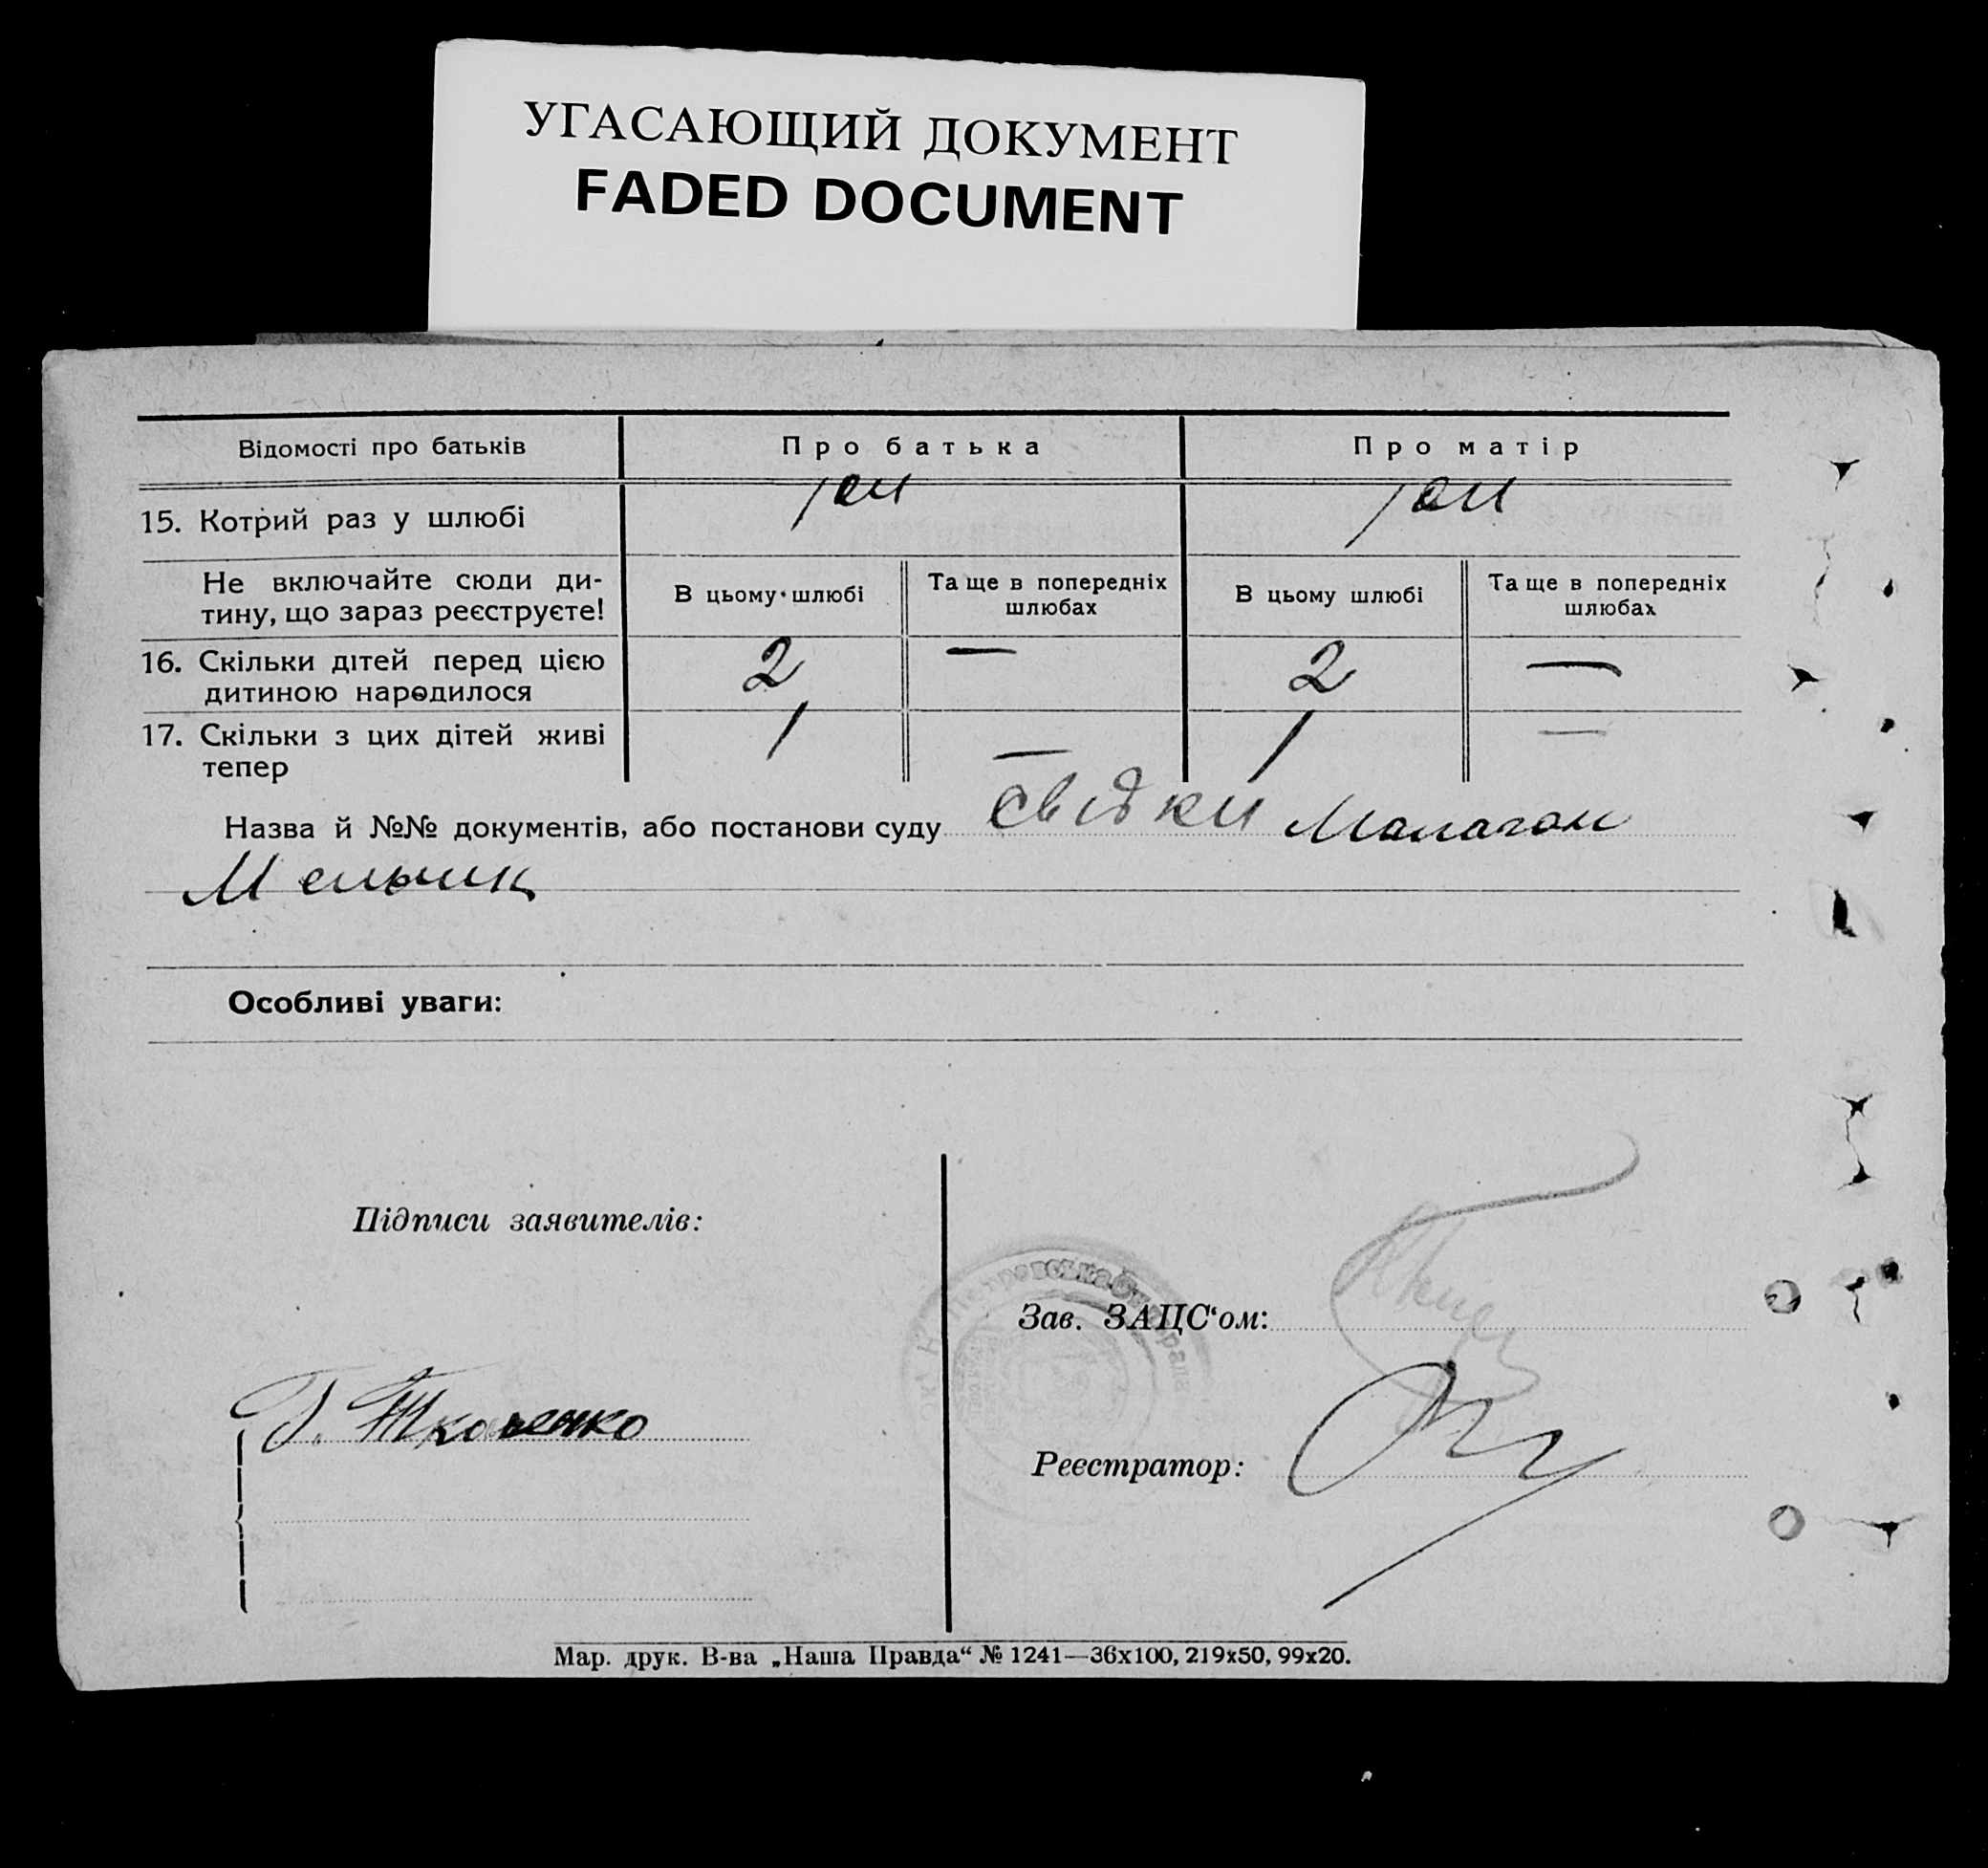 УГАСАЮЩИЙ ДОКУМЕНТ
FADED DOCUMENT
Відомості про батьків Про батька Про матір
15. Котрий раз у шлюбі
Не включайте сюди ди-
тину, що зараз реєструєте!
В цьому шлюбі
Та ще в попередніх
шлюбах
В цьому шлюбі
Та ще в попередніх
шлюбах
16. Скільки дітей перед цією
дитиною народилося
2 — 2 —
17. Скільки з цих дітей живі
тепер
1 — 1 —
Назва й №№ документів, або постанови суду свідки
Мельник
Особливі уваги:
Підписи заявителів:
Зав. ЗАЦС‘ом:
Г. Ткаченко
Реєстратор:
Мар. друк. В-ва „Наша Правда“ № 1241—36х100, 219х50, 99х20.